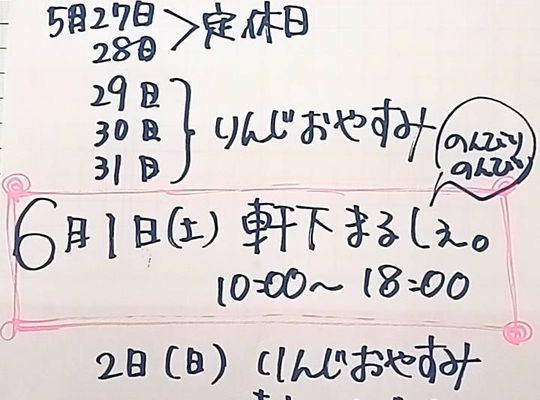 5月27日
28日 > 定休日
29日
30日 } りんじおやすみ
31日
のんびり
のんびり
6月1日(土) 軒下まるしぇ。
10:00〜18:00
2日(日) りんじおやすみ